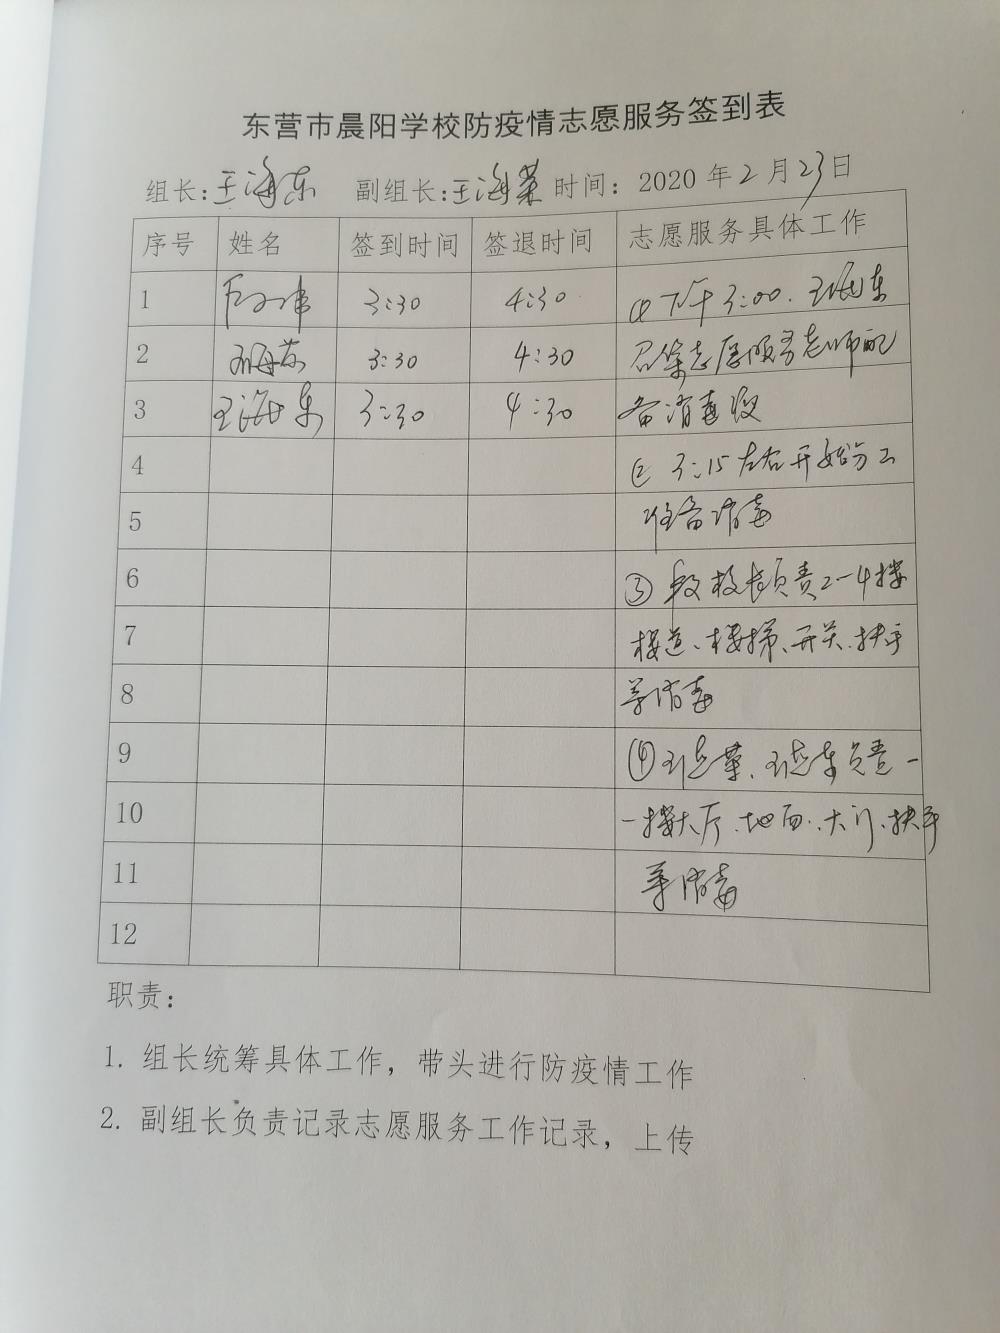 东营市晨阳学校防疫情志愿服务签到表
组长:王海东 副组长:王海荣 时间：2020年2月23日
序号 姓名 签到时间 签退时间 志愿服务具体工作
1 3:30 4:30 ① 下午3:00. 王海东
2 3:30 4:30 召集志愿服务老师配
3 王海东 3:30 4:30 备消毒液
4 ② 3:15左右开始分工
5 准备消毒
6 ③ 段校长负责2-4楼
7 楼道、楼梯、开关、扶手
8 等消毒
9 ④ 王海荣、王海东负责一
10 一楼大厅、地面、大门、扶手
11 等消毒
12
职责：
1. 组长统筹具体工作，带头进行防疫情工作
2. 副组长负责记录志愿服务工作记录，上传